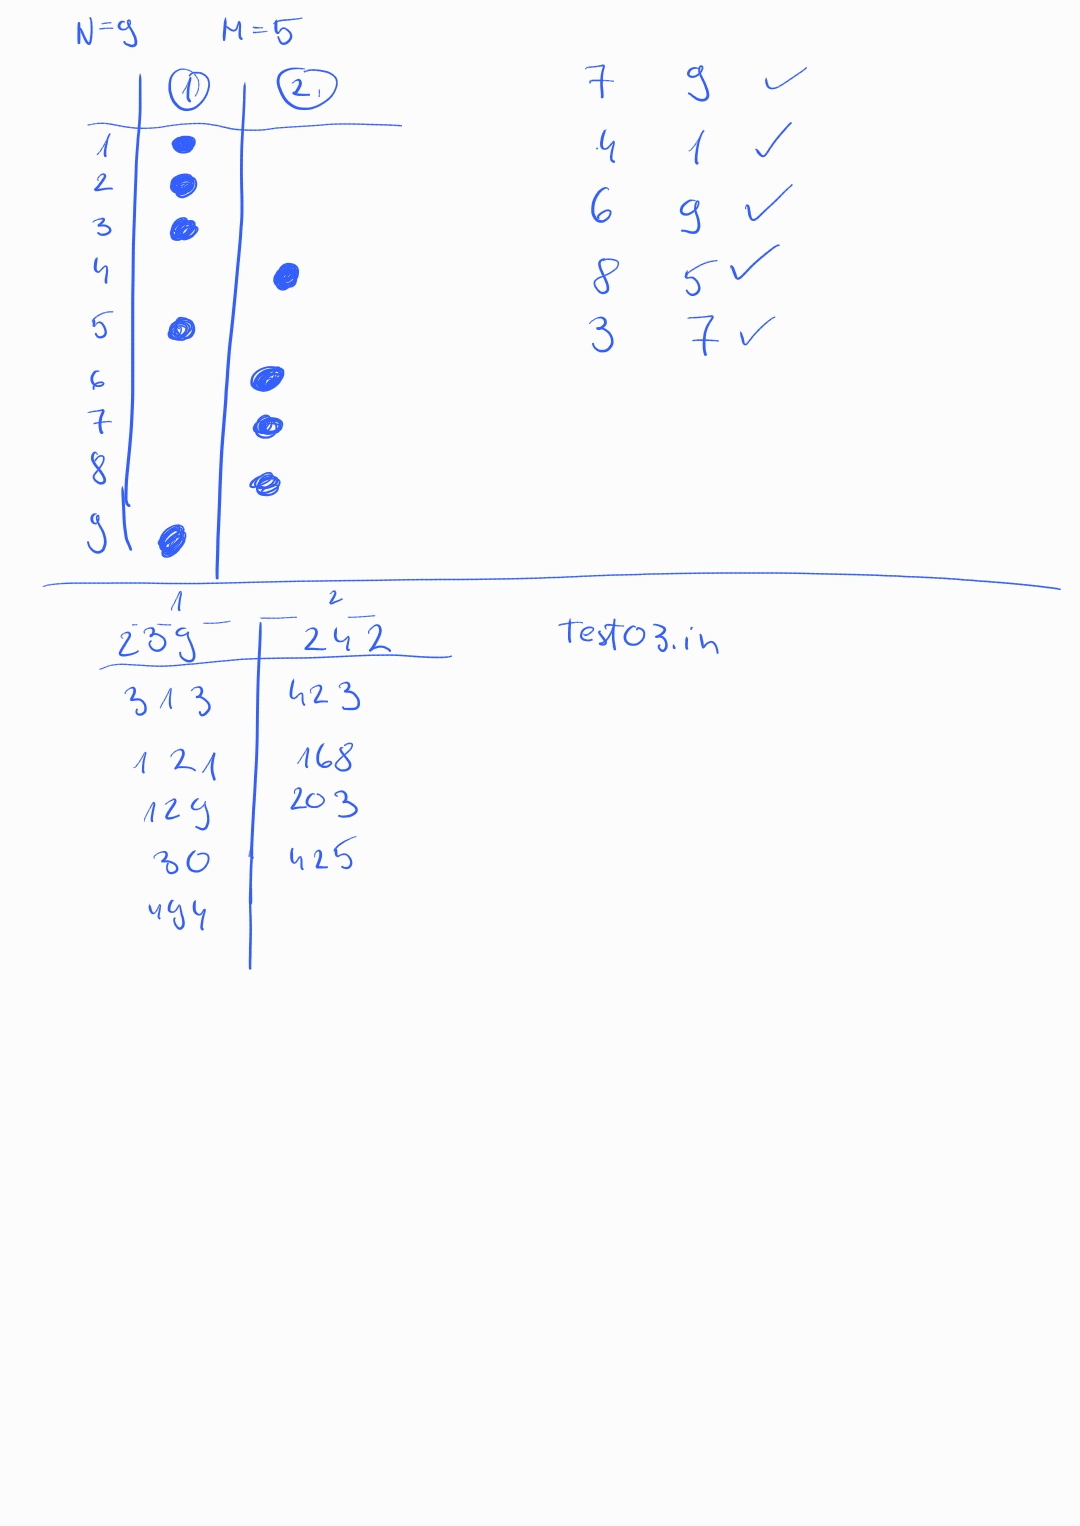 N=9 M=5
1 2.
1
2
3
4
5
6
7
8
9
7 9 ✓
4 1 ✓
6 9 ✓
8 5 ✓
3 7 ✓
1 2
239 242
313 423
121 168
129 203
30 425
494
Test03.in